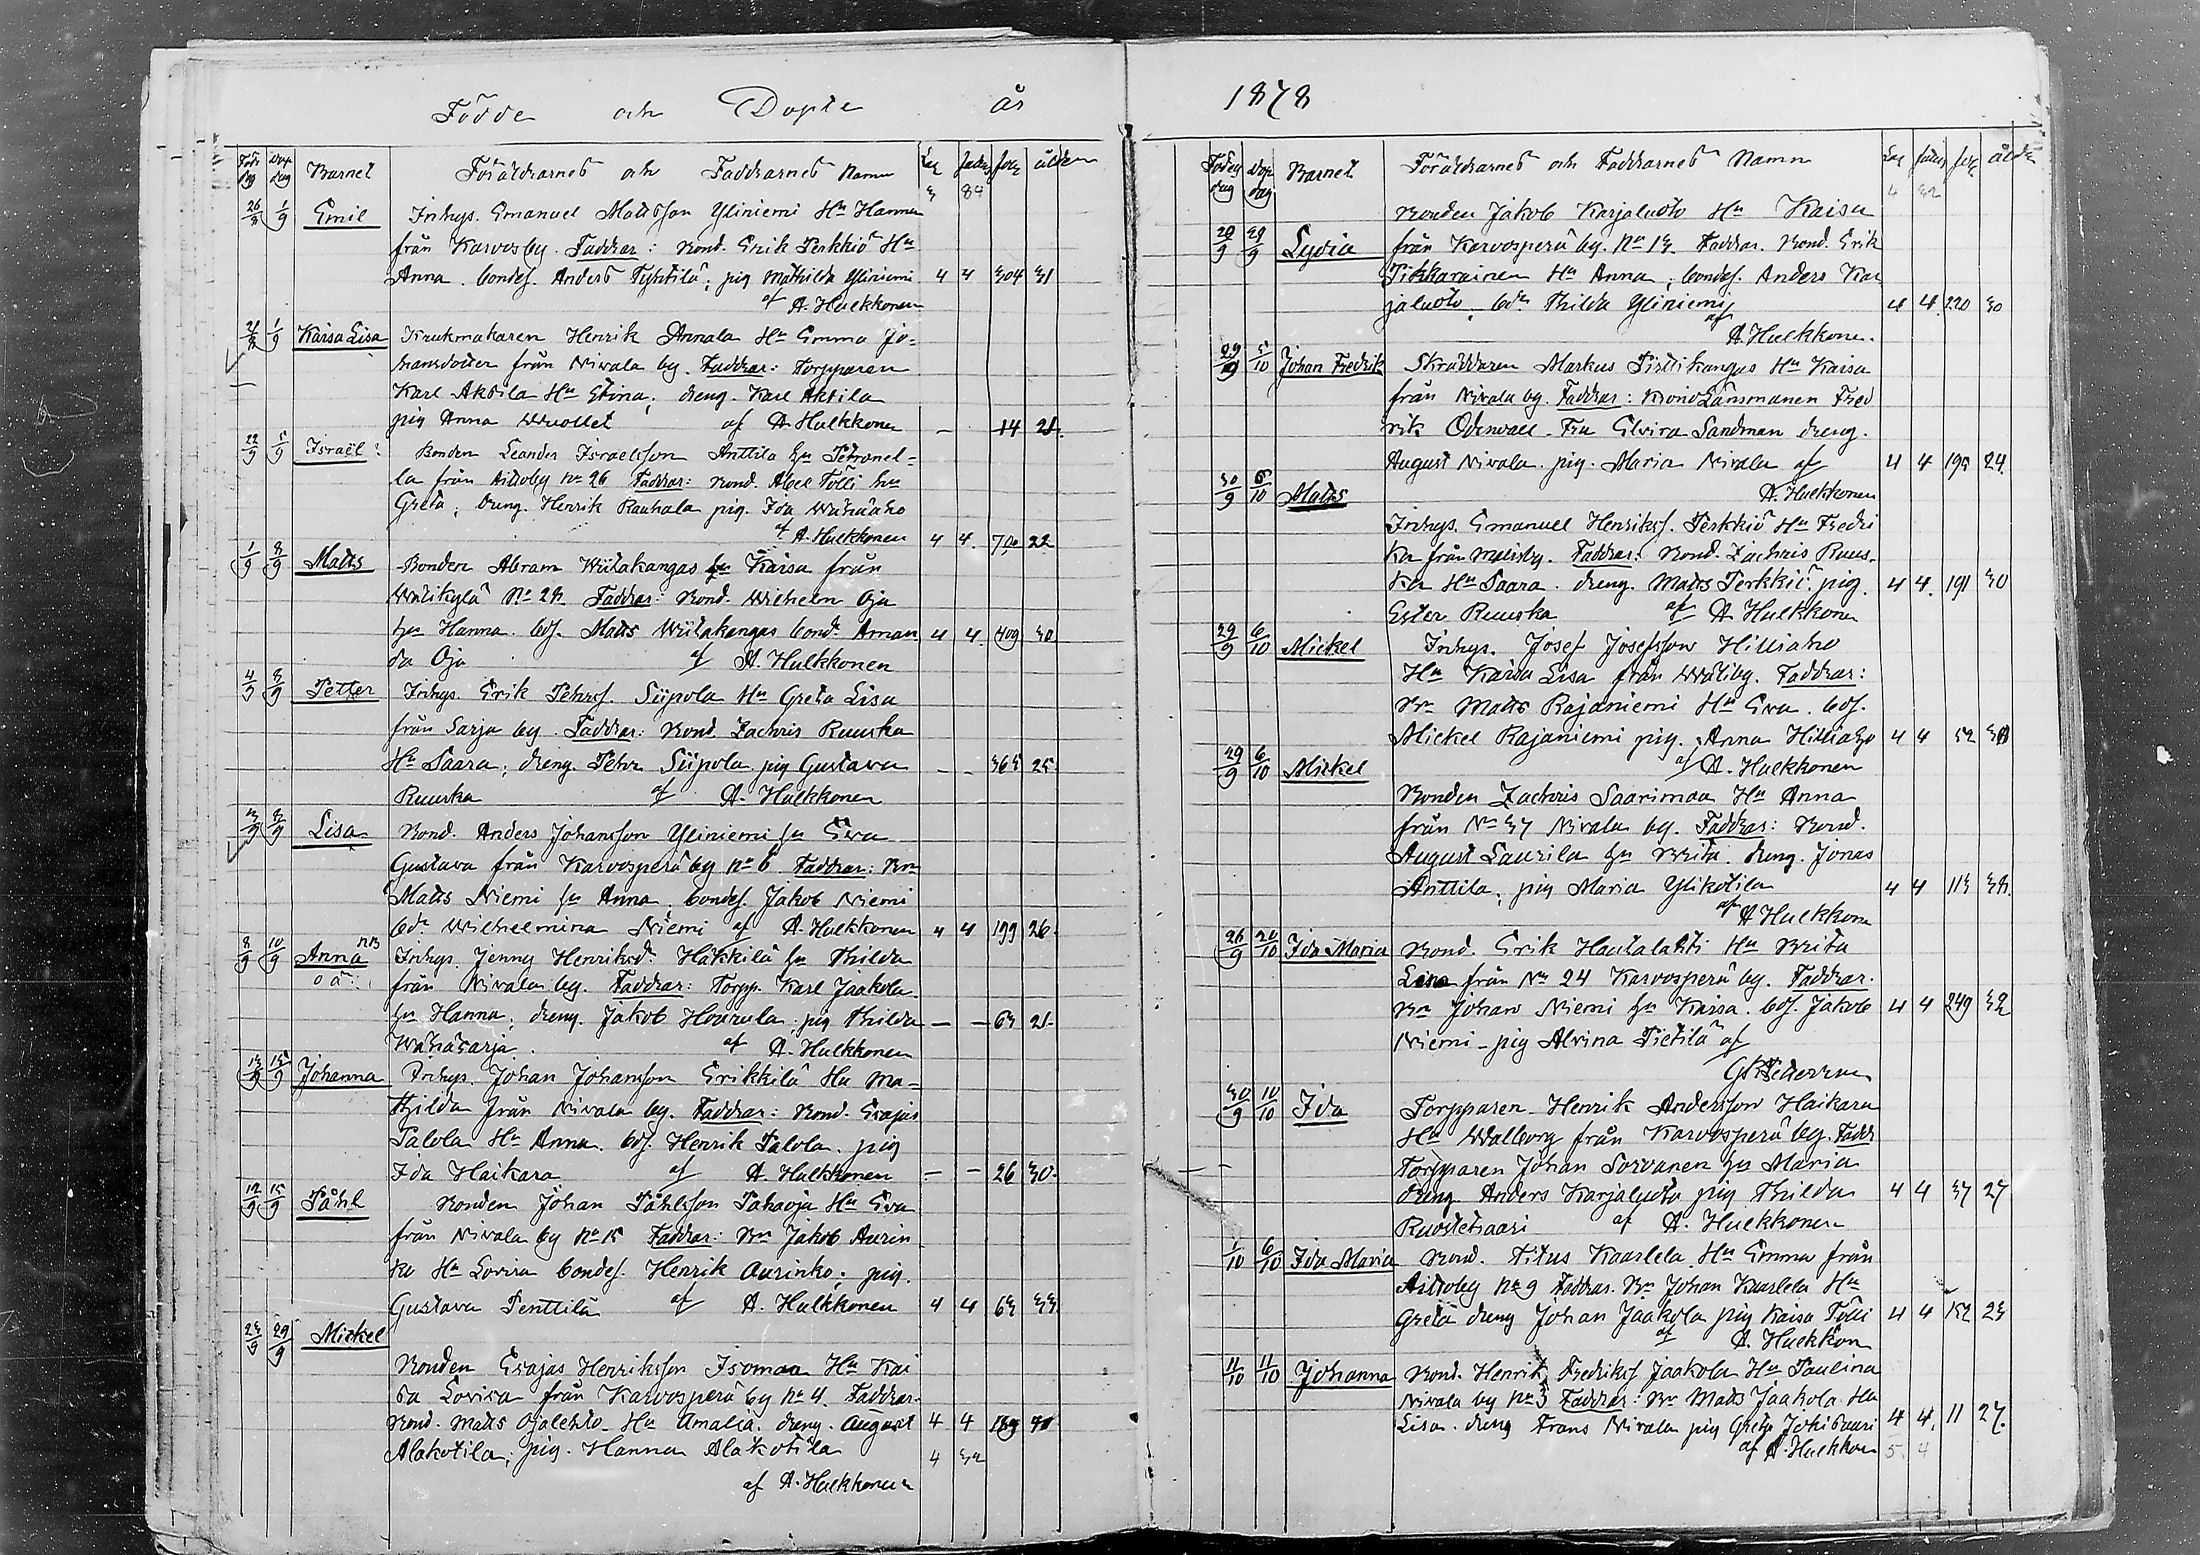 Födde och Döpte år
Föd. dag Döp. dag Barnet Föräldrarnes och Faddrarnes Namn
26/8 1/9 Emil Inhys. Emanuel Mattsson Yliniemi Hu Hanna
från Karvosby. Faddrar: Bond. Erik Perkkiö Hu
Anna. bondes. Anders Tyhtilä; pig Mathilda Yliniemi 4 4 304 31
af A. Hulkkonen
1/9 Kaisa Lisa Krukmakaren Henrik Annala Hu Emma Jo=
hansdotter från Nivala by. Faddrar: Torpparen
Karl Aktila Hu Stina; dreng. Karl Aktila
pig Anna Wuollet af A. Hulkkonen – 14 21.
Israël Bonden Leander Israelsson Anttila hu Petronel=
la från Aittoby No 26 Faddrar: Bond. Abel Tölli hu
Greta; dreng. Henrik Rauhala pig. Ida Wähäaho
af A. Hulkkonen 4 4. 22
1/9 8/9 Matts Bonden Abram Wiitakangas hu Kaisa från
Wälikylä No 28 Faddrar: Bond. Wilhelm Oja
hu Hanna. bds. Matts Wiitakangas bondr. Aman 4 4. 409 30
da Oja af A. Hulkkonen
4/9 8/9 Petter Inhys. Erik Pehrss. Siipola Hu Greta Lisa
från Sarja by. Faddrar: Bond. Zachris Ruuska
Hu Saara; dreng. Pehr Siipola pig Gustava – – 363 25.
Ruuska af A. Hulkkonen
3/9 8/9 Lisa Bond. Anders Johansson Yliniemi hu Ewa
Gustava från Karvosperä by No 6 Faddrar: Bn
Matts Niemi hu Anna. bondes. Jakob Niemi
bdr Wilhelmina Niemi af A. Hulkkonen 4 4 199 26.
8/9 10/9 Anna NB Inhys. Jenny Henriksd. Häkkilä hu Thilda
o ä från Nivala by. Faddrar: Torpp. Karl Jaakola.
hu Hanna; dreng. Jakob pig Thilda – – 63 21.
Wähäsarja. af A. Hulkkonen
13/9 15/9 Johanna Inhys. Johan Johansson Erikkilä Hu Ma=
thilda från Nivala by. Faddrar: Bond. Esajas
Palola Hu Anna. bds. Henrik Palola. pig
Ida Haikara af A. Hulkkonen – – 26 30.
12/9 15/9 Påhl Bonden Johan Påhlsson Pahaoja Hu Eva
från Nivala by No 15 Faddrar: Bn Jakob Aurin
ko Hu Lovisa bondes. Henrik Aurinko; pig.
Gustava Penttilä af A. Hulkkonen 4 4 63 33
23/9 29/9 Mickel
Bonden Esajas Henriksson Isomaa Hu Kai
sa Lovisa från Karvosperä by No 4. Faddrar.
Bond. Matts Ojalehto Hu Amalia. dreng. August 4 4 189 40
Alakotila; pig. Hanna Alakotila 4 32
af A. Hulkkonen
1878
Födelse dag Döp dag Barnet Föräldrarnes och Faddrarnes Namn
4 32
Bonden Jakob Karjaluoto Hu Kaisa
29/9 Lydia från Karvosperä by. No 13. Faddrar. Bond. Erik
Pikkarainen Hu Anna; bondes. Anders Kar
jaluoto. bdr Thilda Yliniemi 4 4. 220 30
af A. Hulkkonen.
29/9 5/10 Johan Fredrik Skräddaren Markus Pirttikangas Hu Kaisa
från Nivala by. Faddrar: Kronolänsmanen Fred
rik Odenwall. Fru Elvira Sandman dreng.
August Nivala. pig. Maria Nivala af 4 4 199 24.
A. Hulkkonen
30/9 6/10 Matts
Inhys. Emanuel Henrikss. Perkkiö Hu Fredri
ka från Malisby. Faddrar: Bond. Zachris Ruus.
ka Hu Saara. dreng. Matts Perkkiö. pig. 4 4. 191 30
Ester Ruuska af A. Hulkkonen
29/9 6/10 Mickel Inhys. Josef Josefsson Hilliaho
Hu Kaisa Lisa från Wäliby. Faddrar:
Bn Matts Rajaniemi Hu Ewa. bds.
Mickel Rajaniemi pig. Anna Hilliaho 4 4 52
af A. Hulkkonen
29/9 6/10 Mickel
Bonden Zachris Saarimaa Hu Anna
från No 37 Nivala by. Faddrar: Bond.
August Laurila hu Brita. dreng. Jonas
Anttila; pig Maria Ylikotila 4 4 113 38.
af A Hulkkonen
26/9 20/10 Ida Maria Bond. Erik Hautalahti Hu Brita
Lisa från No 24 Karvosperä by. Faddrar.
Bn Johan Niemi hu Kaisa. bds. Jakob 4 4 249 32
Niemi – pig Alvina Pietilä af

30/9 10/10 Ida Torpparen Henrik Andersson Haikara
Hu Walborg från Karvosperä by. Faddr
Torpparen Johan Sorvanen hu Maria
dreng Anders Karjaluoto pig Thilda 4 4 37 27
Ruostetsaari af A. Hulkkonen
1/10 6/10 Ida Maria Bond. Titus Kaarlela Hu Emma från
Aittoby No 9 Faddrar. Bn Johan Kaarlela Hu
Greta dreng Johan Jaakola pig Kaisa Tölli 4 4 152 23
af A. Hulkkon
11/10 11/10 Johanna Bond. Henrik Fredrikss Jaakola Hu Paulina
Nivala by No 3 Faddrar: Bn Matts Jaakola Hu
Lisa. dreng Frans Nivala pig Greta Jokisaari 4 4. 11 27.
af A. Hulkkon 5 4